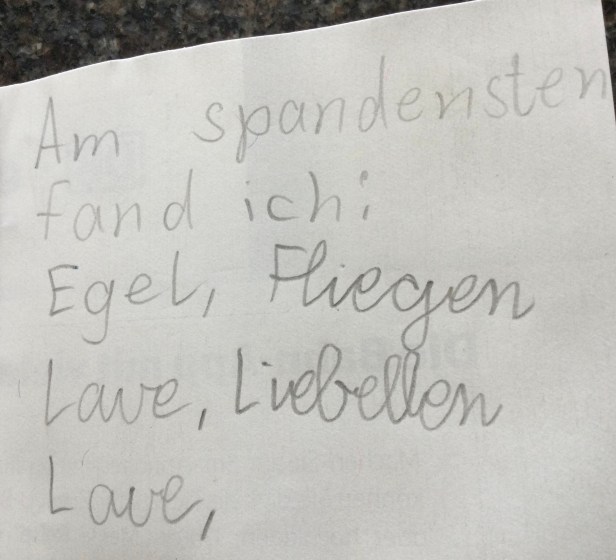 Am spandensten
fand ich:
Egel, Fliegen
Lave, Liebellen
Lave,